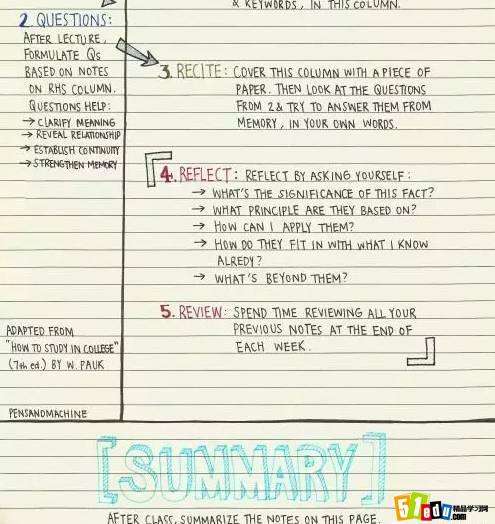 & KEYWORDS, IN THIS COLUMN.
2. QUESTIONS:
AFTER LECTURE,
FORMULATE Qs
BASED ON NOTES
ON RHS COLUMN.
QUESTIONS HELP:
→ CLARIFY MEANING
→ REVEAL RELATIONSHIP
→ ESTABLISH CONTINUITY
→ STRENGTHEN MEMORY
3. RECITE: COVER THIS COLUMN WITH A PIECE OF
PAPER. THEN LOOK AT THE QUESTIONS
FROM 2 & TRY TO ANSWER THEM FROM
MEMORY, IN YOUR OWN WORDS.
4. REFLECT: REFLECT BY ASKING YOURSELF:
→ WHAT'S THE SIGNIFICANCE OF THIS FACT?
→ WHAT PRINCIPLE ARE THEY BASED ON?
→ HOW CAN I APPLY THEM?
→ HOW DO THEY FIT IN WITH WHAT I KNOW
ALREDY?
→ WHAT'S BEYOND THEM?
5. REVIEW: SPEND TIME REVIEWING ALL YOUR
PREVIOUS NOTES AT THE END OF
EACH WEEK.
ADAPTED FROM
"HOW TO STUDY IN COLLEGE"
(7th ed.) BY W. PAUK
PENSANDMACHINE
[SUMMARY]
AFTER CLASS, SUMMARIZE THE NOTES ON THIS PAGE.
51edu
精品学习网
.com